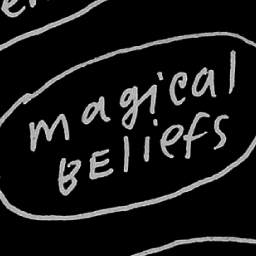 magical
BELiefS